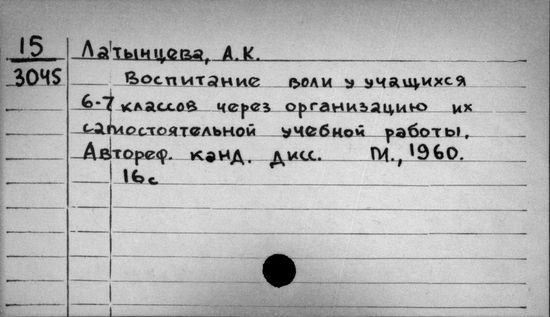 15 Латынцева, А.К.
3045 Воспитание воли у учащихся
6-7 классов через организацию их
самостоятельной учебной работы.
Автореф. канд. дисс. М., 1960.
16с